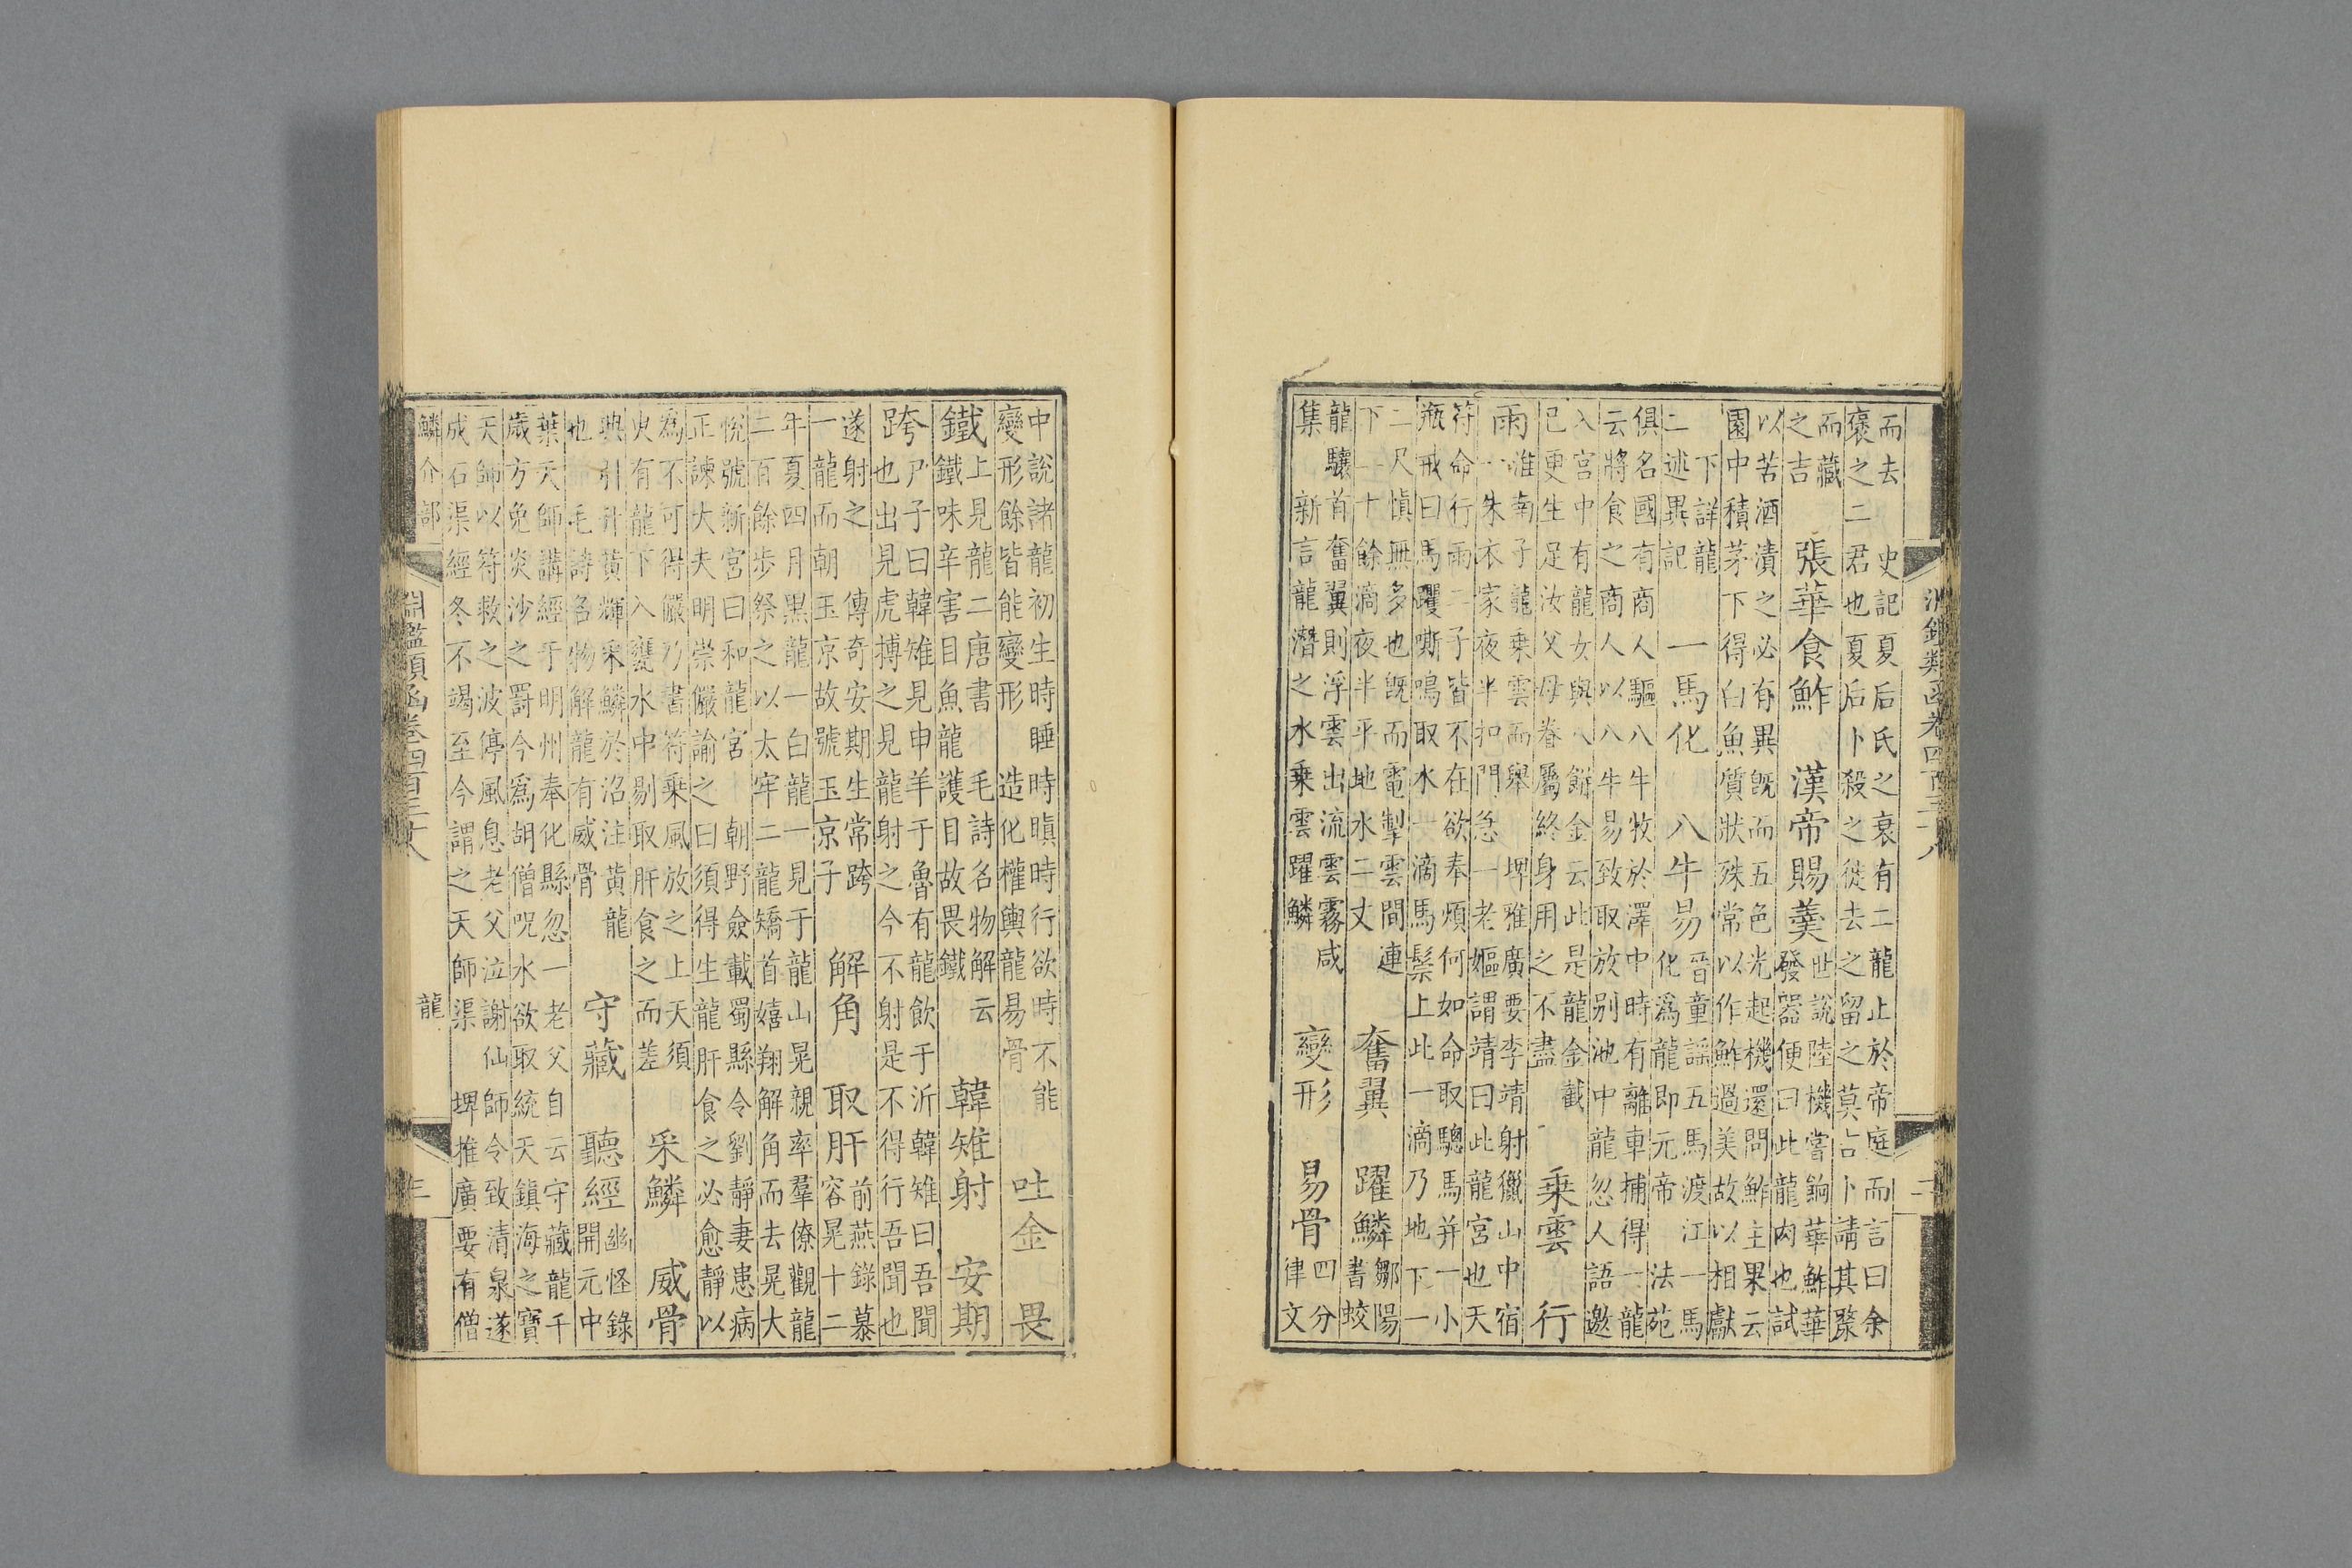 淵鑑類函卷四百三十八
二
而去
褒之二
史記夏后氏之衰有二龍止於帝庭而言曰余
君也夏后卜殺之徙去之留之莫吉卜請其漦
而藏
之吉
張華食鮓
漢帝賜羹
世說陸機嘗餉華鮓華
發器便曰此龍肉也試
以苦酒漬之必有異既而五色光起機還問鮓主果云
園中積茅下得白魚質狀殊常以作鮓過美故以相獻
下詳龍
二述異記
一馬化
八牛易
晉童謠五馬渡江一馬
化爲龍即元帝
法苑
俱名國有商人驅八牛牧於澤中時有離車捕得一龍
云將食之商人以八牛易致取放别池中龍忽人語邀
入宮中有龍女與八餅金云此是龍金截
已更生足汝父母眷屬終身用之不盡
乘雲
行
雨
淮南子龍乘雲而舉
埤雅廣要李靖射獵山中宿
一朱衣家夜半扣門急一老嫗謂靖曰此龍宮也天
符命行雨二子皆不在欲奉煩何如命取驄馬并一小
瓶戒曰馬躩嘶鳴取水一滴馬鬃上此一滴乃地下一
二尺慎無多也既而電掣雲間連
下一十餘滴夜半平地水二丈
奮翼
躍鱗
鄒陽
書蛟
龍驤首奮翼則浮雲出流雲霧咸
集
新言龍潛之水乘雲躍鱗
變形
易骨
四分
律文
中說諸龍初生時睡時瞋時行欲時不能
變形餘皆能變形
造化權輿龍易骨
吐金
畏
鐵
上見龍二唐書
毛詩名物解云
鐵味辛害目魚龍護目故畏鐵
韓雉射
安期
跨
尸子曰韓雉見申羊于魯有龍飲于沂韓雉曰吾聞
也出見虎搏之見龍射之今不射是不得行吾聞也
遂射之
傳奇安期生常跨
一龍而朝玉京故號玉京子
解角
取肝
前燕錄慕
容晃十二
年夏四月黑龍一白龍一見于龍山晃親率羣僚觀龍
二百餘步祭之以太牢二龍矯首嬉翔解角而去晃大
悅號新宮曰和龍宮
朝野僉載蜀縣令劉靜妻患病
正諫大夫明崇儼諭之曰須得生龍肝食之必愈靜以
爲不可得儼乃書符乘風放之上天須
臾有龍下入甕水中剔取肝食之而差
采鱗
威骨
典引升黃輝采鱗於沼注黃龍
也
毛詩名物解龍有威骨
守藏
聽經
幽怪錄
開元中
葉天師講經于明州奉化縣忽一老父自云守藏龍千
歲方免炎沙之罰今爲胡僧呪水欲取統天鎮海之寶
天師以符救之波停風息老父泣謝仙師令致清泉遂
成石渠經冬不竭至今謂之天師渠
埤雅廣要有僧
鱗介部
龍
淵鑑類函卷四百三十八
三